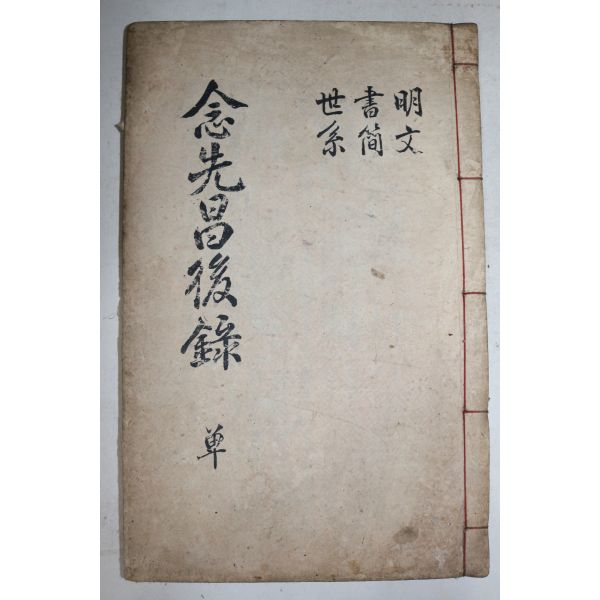 明文
書簡
世系
念先昌後錄 單